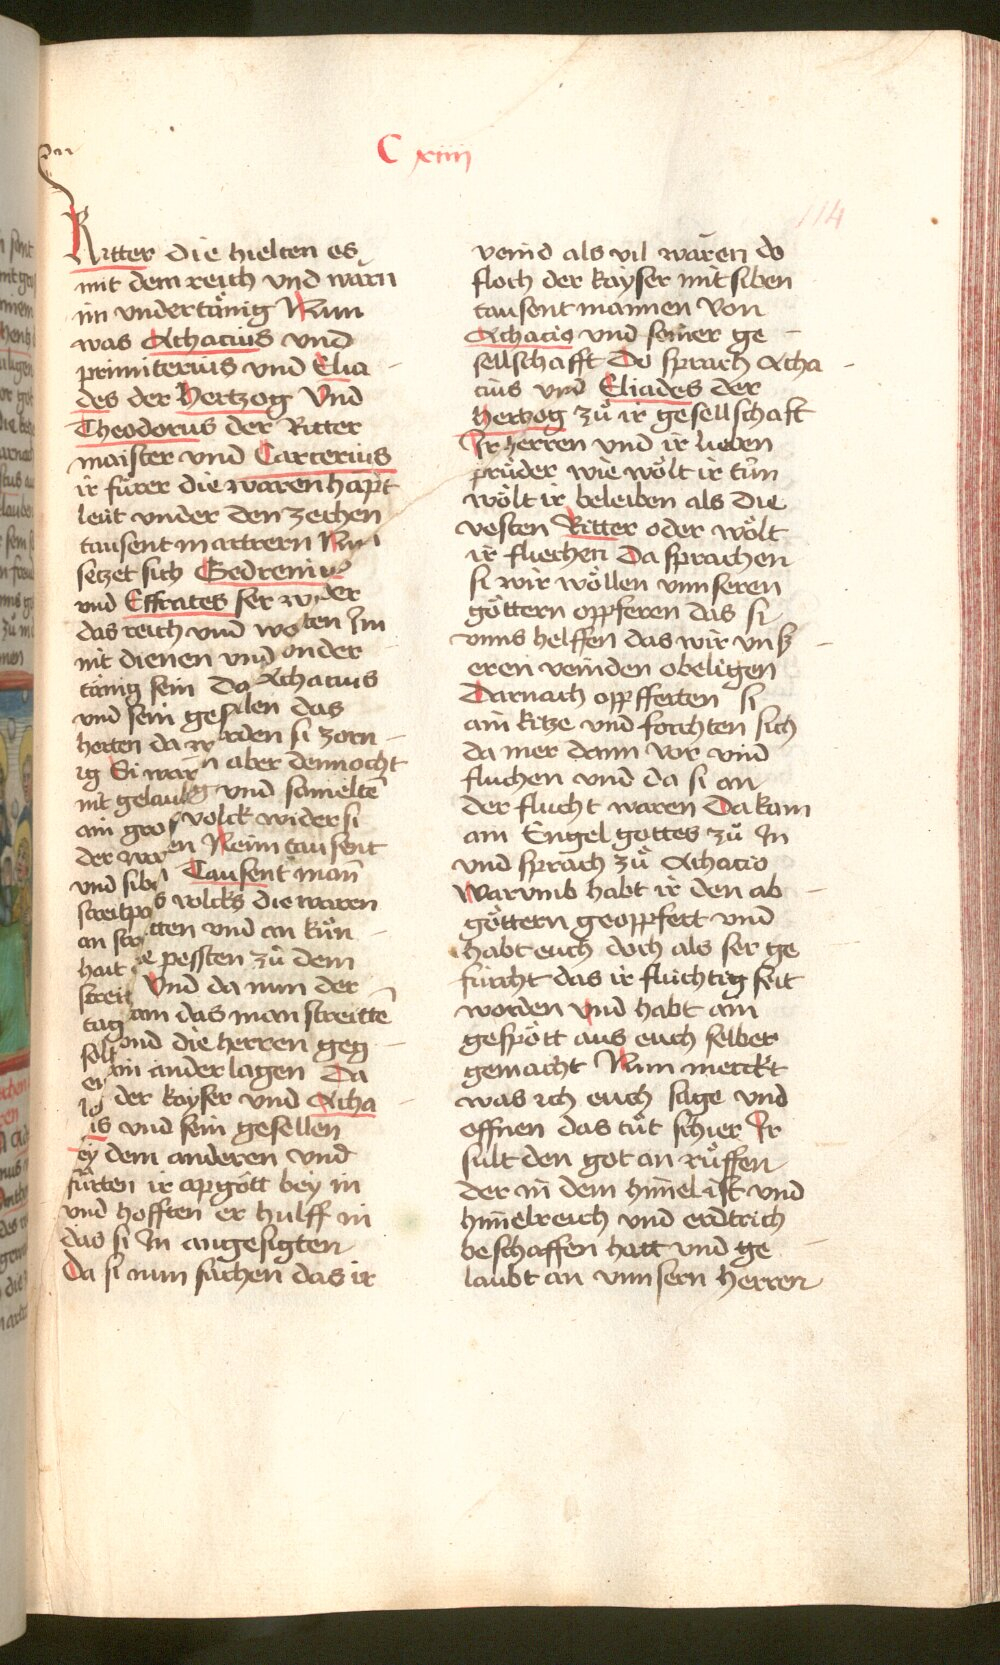 C xiiii
114
Ritter die hielten es
mit dem reich vnd warn
im vndertänig Nun
was Achacius vnd
primiterius vnd Elia
des der Hertzog Vnd
Theodorus der Ritter
maister vnd Carterius
ir fürer die waren hapt
leüt vnder den zechen
tausent martrern Nun
setzet sich Gedrenius
vnd Effrates ser wider
das reich vnd wolten Im
nit dienen vnd onder
tänig sein Do Achacius
vnd sein gesellen das
horten da wurden si zorn
ig Si waren aber dennocht
nit gelaubig vnd samelten̄
ain gros volck wider si
der waren Neun tausent
vnd siben Tausent man̄
streitpars volcks die waren
an streitten vnd an kün
hait die pessten zů dem
streit Vnd da nun der
tag kam das man streitten̄
solt vnd die herren geg
en ain ander lagen Da
lag der kayser vnd Acha
cius vnd sein gesellen
bey dem anderen vnd
fürten ir apgött bey in
vnd hofften er hulff in
das si In angesigten
Da si nun sachen das ir
veind als vil waren do
floch der kayser mit siben
tausent mannen von
Achacio vnd seiner ge
sellschafft Do sprach Acha
cius vnd Eliades der
Hertzog zů ir gesellschaft
Ir herren vnd ir lieben
prüder wie wölt ir tůn
wölt ir beleiben als die
vesten Ritter oder wölt
ir fliechen Da sprachen
si wir wöllen vnnseren
göttern oppferen das si
vnns helffen das wir vnß
eren veinden obeligen
Darnach oppfferten si
ain kitze vnd forchten sich
da mer dann vor vnd
fluchen vnd da si an
der flucht waren Da kam
ain Engel gottes zů In
vnd sprach zů Achacio
Warvmb habt ir den ab
göttern geoppfert vnd
habt euch doch als ser ge
fürcht das ir flüchtig seit
worden vnd habt ain
gespött aus euch selber
gemacht Nun merckt
was ich euch sage vnd
offnen das tůt schier Ir
sült den got an rüffen
der in dem himel ist vnd
himelreich vnd erdtrich
beschaffen hatt vnd ge
laubt an vnnsern herren